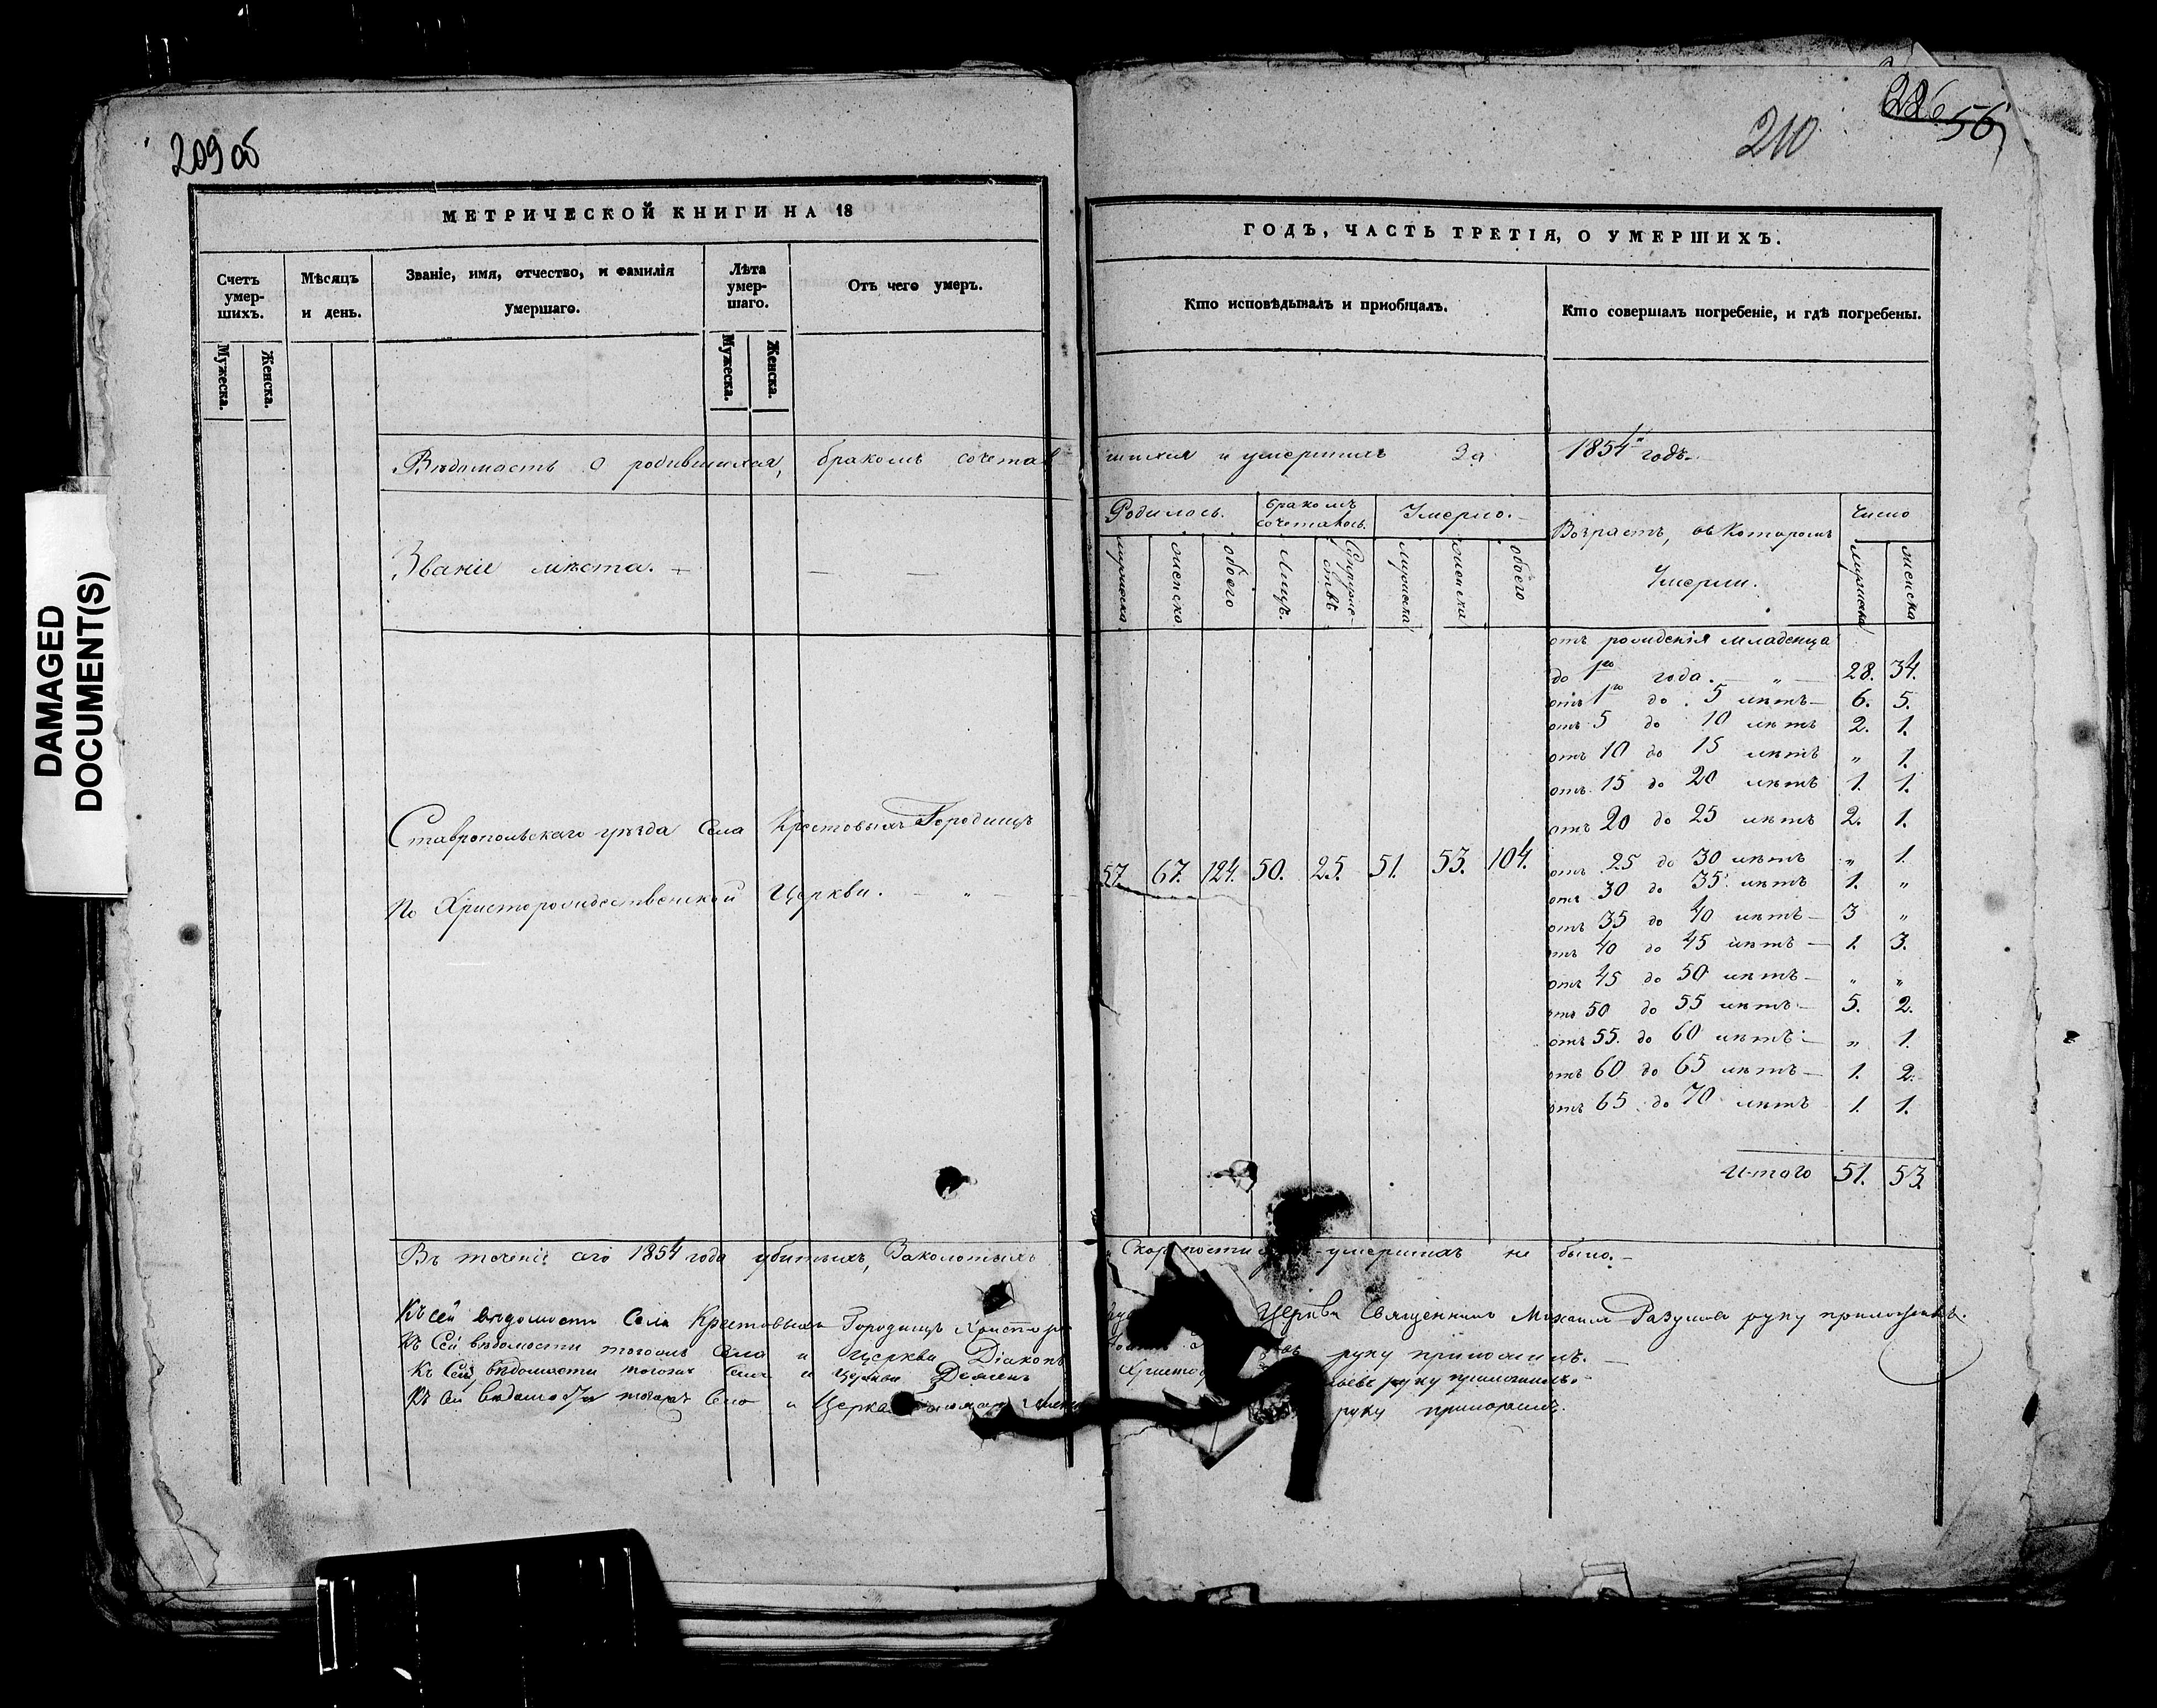 209 об
210
226
56
DAMAGED
DOCUMENT(S)
МЕТРИЧЕСКОЙ КНИГИ НА 18
ГОДЪ, ЧАСТЬ ТРЕТІЯ, О УМЕРШИХЪ.
Счетъ умер-шихъ.
Мѣсяцъ и день.
Званіе, имя, отчество, и фамилія умершаго.
Лѣта умер-шаго.
Отъ чего умеръ.
Кто исповѣдывалъ и пріобщалъ.
Кто совершалъ погребеніе, и гдѣ погребены.
Мужеска. Женска. Мужеска. Женска.
Вѣдомость о родившихся, бракомъ сочетав шихся и умершихъ За 1854й годъ.
Званіе мѣста.
Родилось. бракомъ сочеталось. Умерло.
Возрастъ, въ Которомъ Умерли.
Число
мужеска женска обоего Лицъ. Супруже-ствъ мужеска женска обоего
мужеска женска
отъ рожденія младенца
до 1го года. " 28. 34.
отъ 1го до 5 лѣтъ 6. 5.
отъ 5 до 10 лѣтъ 2. 1.
отъ 10 до 15 лѣтъ " 1.
отъ 15 до 20 лѣтъ 1. 1.
отъ 20 до 25 лѣтъ 2. 1.
отъ 25 до 30 лѣтъ " 1.
отъ 30 до 35 лѣтъ 1. "
отъ 35 до 40 лѣтъ 3 "
отъ 40 до 45 лѣтъ 1. 3.
отъ 45 до 50 лѣтъ " "
отъ 50 до 55 лѣтъ 5. 2.
отъ 55 до 60 лѣтъ " 1.
отъ 60 до 65 лѣтъ 1. 2.
отъ 65 до 70 лѣтъ 1. 1.
Итого 51. 53.
Ставропольскаго уѣзда Села Крестовыхъ Городищъ
По Христорождественской Церкви. "
57. 67. 124. 50. 25. 51. 53. 104.
Въ теченіе сего 1854 года убитыхъ, Заколотыхъ Скоропостижно умершихъ не было.
Къ сей вѣдомости Села Крестовыхъ Городищъ Церкви Священникъ Михаилъ Разумовъ руку приложилъ.
Къ Сей вѣдомости тогожъ Села и Церкви Діаконъ руку приложилъ.
Къ Сей вѣдомости тогожъ Села и Церкви руку приложилъ.
Къ Сей вѣдомости тогожъ Села и руку приложилъ.